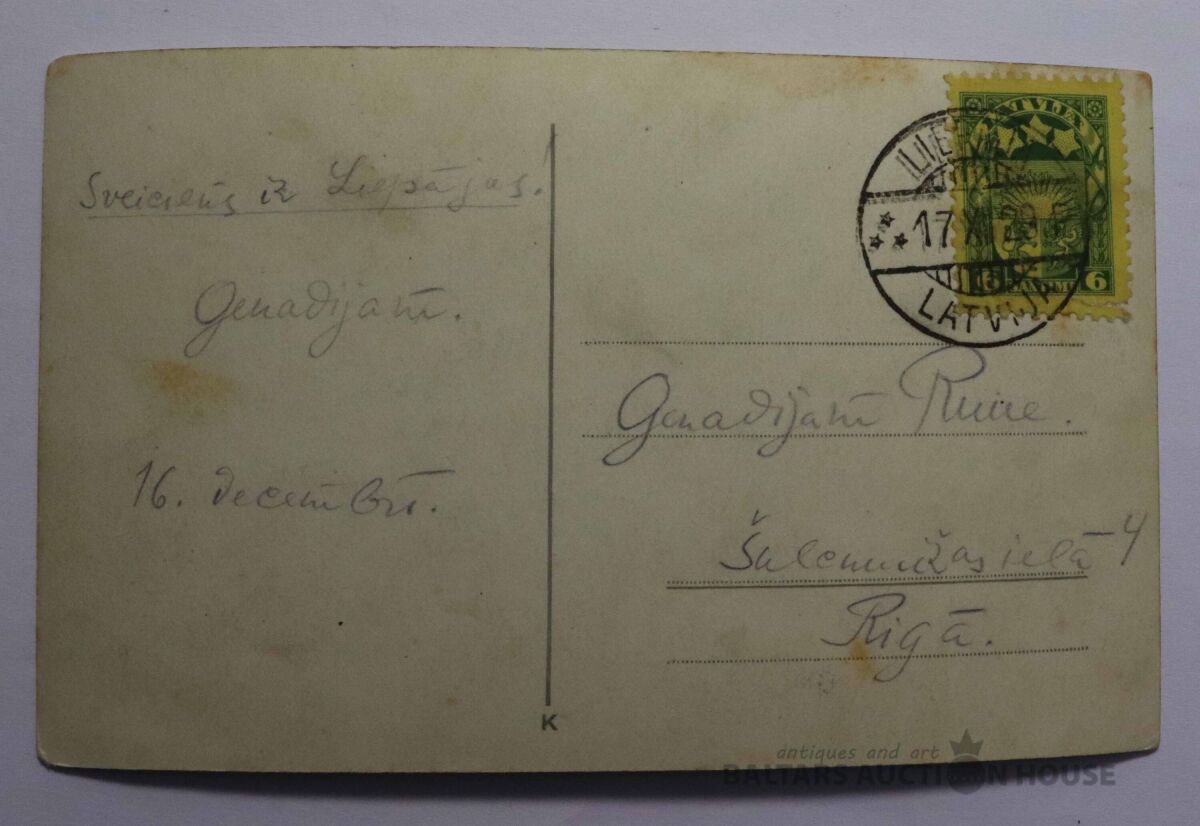 Sveiciens iz Liepājas.
Genadijam̄.
16. decem̄brī.
K
LATVIJA
17 XI 29
LATVIJA
SANTIMI 6
Genadijam̄
Šulcmuižas ielā 4
Rīgā.
antiques and art
BALTARS AUCTION HOUSE